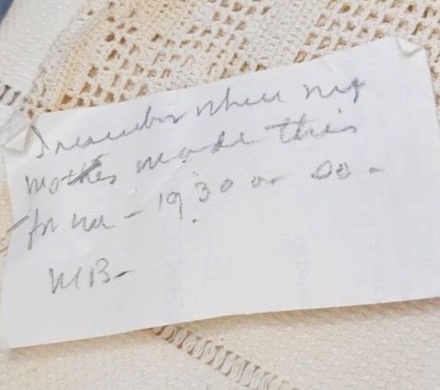 I remember when my
mother made this
for me - 1930 or so -
MB-